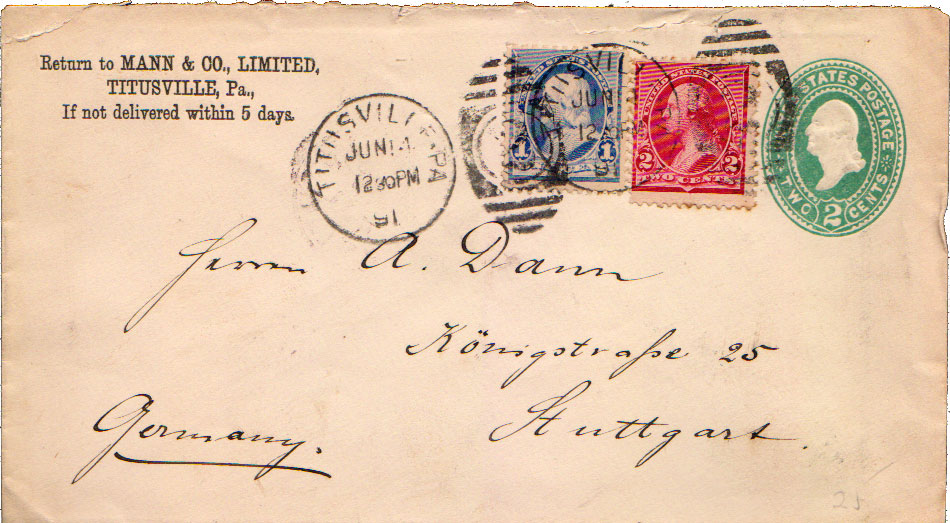 Return to MANN & CO., LIMITED,
TITUSVILLE, Pa.,
If not delivered within 5 days.
TITUSVILLE PA
JUN 14
1230PM
91
TITUSVILL
JU
12
1 1
UNITED STATES POSTAGE
2 2
TWO CENTS
STATES POSTAGE
TWO 2 CENTS
Herrn A. Dann
Königstraße 25
Stuttgart.
Germany.
25